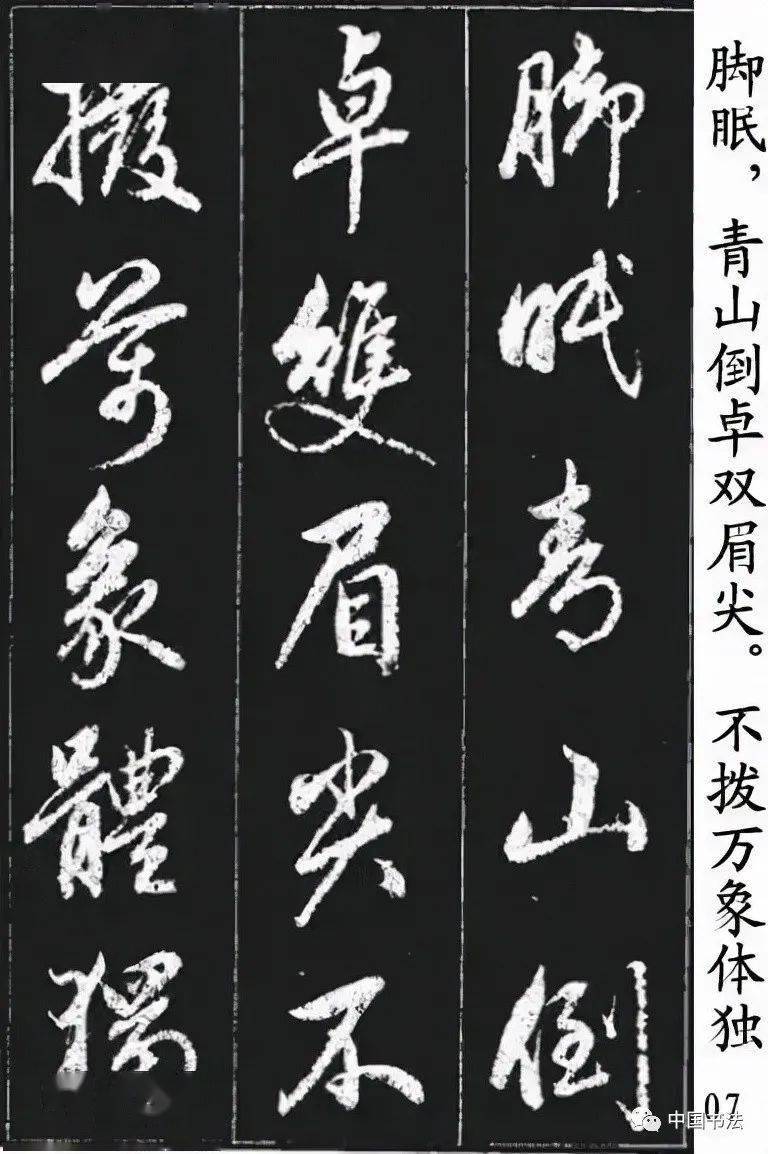 脚眠青山倒
卓雙眉尖不
撥萬象體獨
脚眠，青山倒卓双眉尖。不拨万象体独
07
中国书法